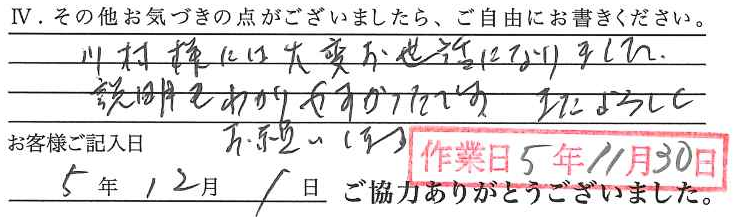 Ⅳ．その他お気づきの点がございましたら、ご自由にお書きください。
川村様には大変お世話になりました。
説明もわかりやすかったです。またよろしく
お願いします
お客様ご記入日
作業日5年11月30日
5年12月1日 ご協力ありがとうございました。